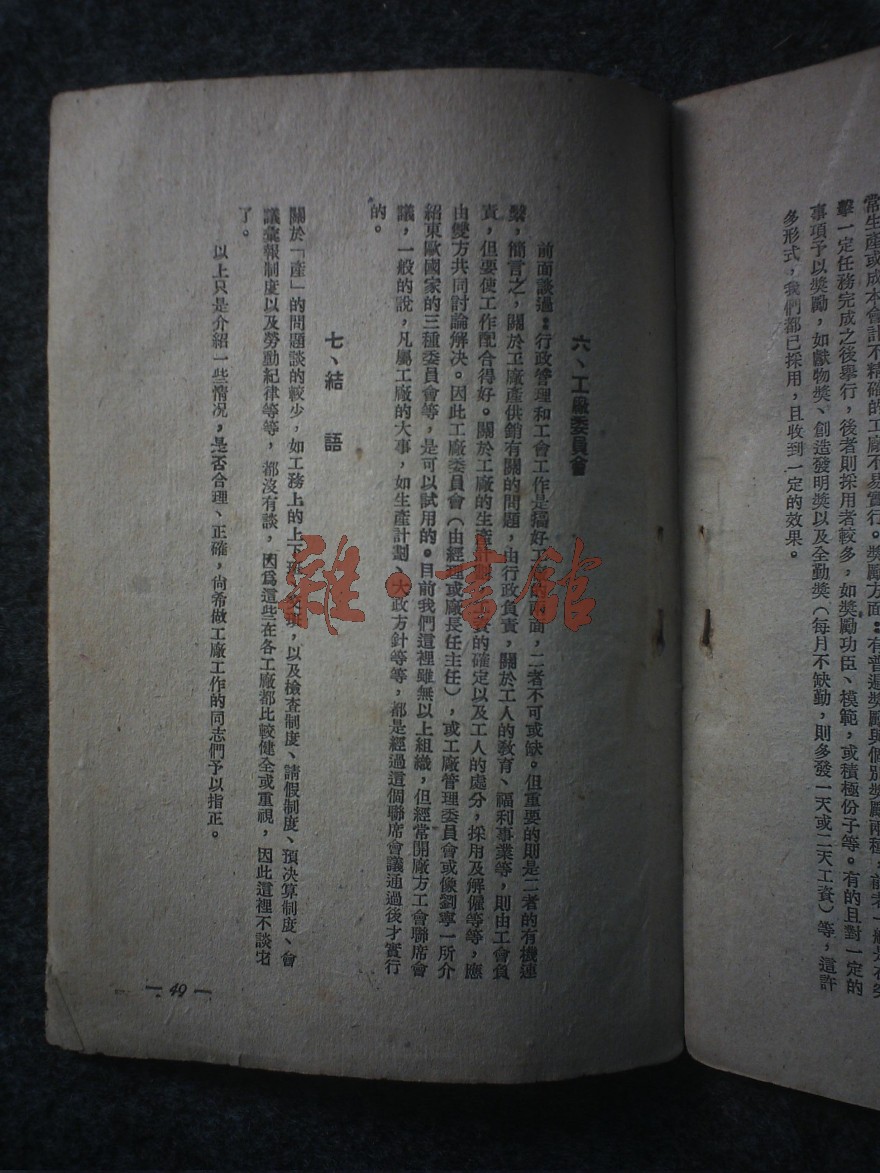 常生產或成本會計不精確的工廠不易實行。獎勵方面：有普遍獎勵與個別獎勵兩種，前者一般是在
擊一定任務完成之後舉行，後者則採用者較多，如獎勵功臣、模範，或積極份子等。有的且對一定的
事項予以獎勵，如獻物獎、創造發明獎以及全勤獎（每月不缺勤，則多發一天或二天工資）等，這許
多形式，我們都已採用，且收到一定的效果。
六、工廠委員會
前面談過：行政管理和工會工作是搞好工廠的兩面，二者不可或缺。但重要的則是二者的有機連
繫，簡言之，關於工廠產供銷有關的問題，由行政負責，關於工人的教育、福利事業等，則由工會負
責，但要使工作配合得好。關於工廠的生產計劃、的確定以及工人的處分，採用及解僱等等，應
由雙方共同討論解決。因此工廠委員會（由經理或廠長任主任），或工廠管理委員會或像劉寧一所介
紹東歐國家的三種委員會等，是可以試用的。目前我們這裡雖無以上組織，但經常開廠方工會聯席會
議，一般的說，凡屬工廠的大事，如生產計劃、大政方針等等，都是經過這個聯席會議通過後才實行
的。
七、結 語
關於「產」的問題談的較少，如工務上的上下班、以及檢查制度、請假制度、預決算制度、會
議彙報制度以及勞動紀律等等，都沒有談，因爲這些在各工廠都比較健全或重視，因此這裡不談它
了。
以上只是介紹一些情況，是否合理、正確，尙希做工廠工作的同志們予以指正。
— 49 —
雜·書館